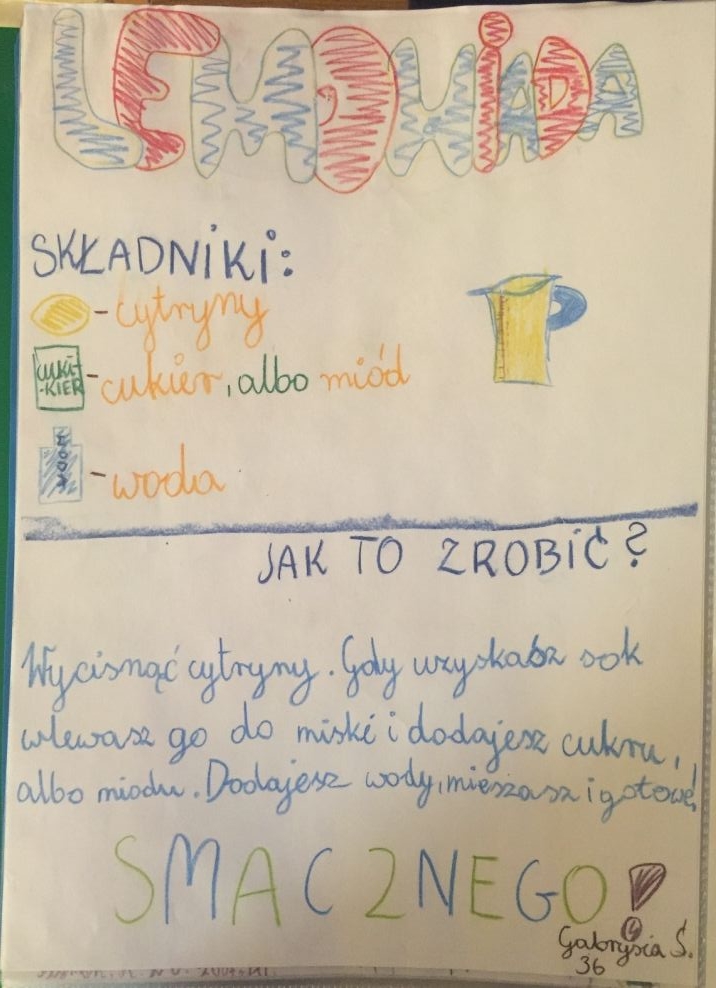 LEMONiADA
SKŁADNiKi:
- cytryny
CUKI-
-KIER
- cukier, albo miód
WODA
- woda
JAK TO ZROBiĆ?
Wycisnąć cytryny. Gdy uzyskasz sok
wlewasz go do miski i dodajesz cukru,
albo miodu. Dodajesz wody, mieszasz i gotowe!
SMACZNEGO!
Gabrysia Ś.
36